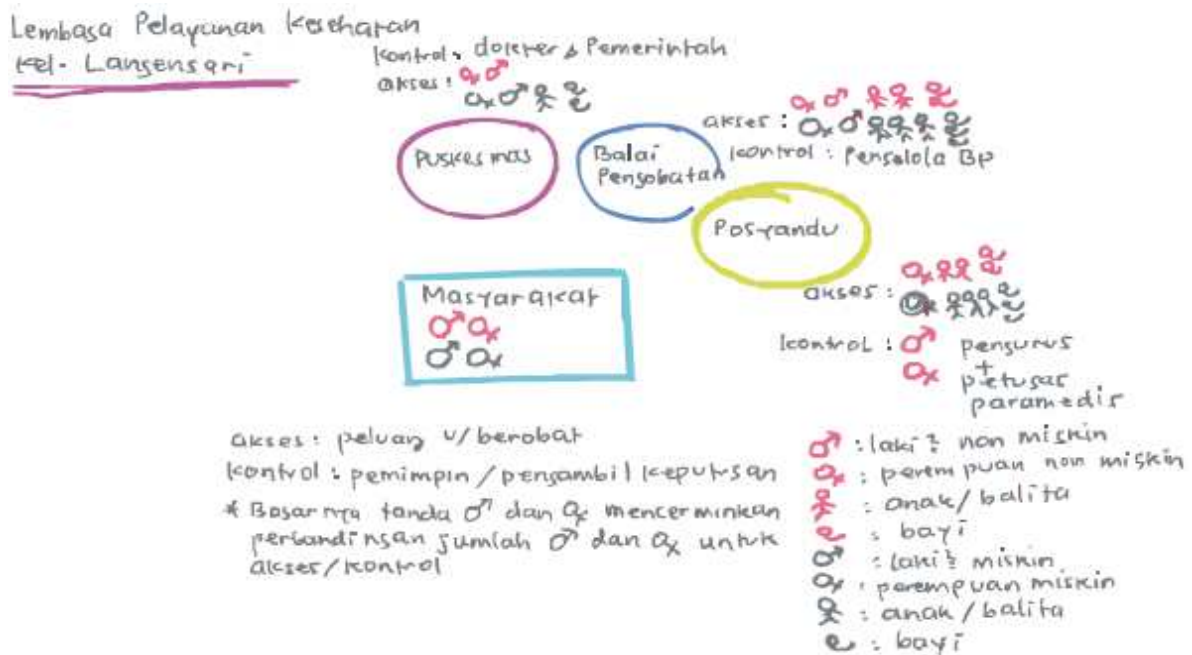 Lembaga Pelayanan Kesehatan
Kel. Langensari
kontrol: dokter & Pemerintah
akses: ♀ ♂
♀ ♂
Puskesmas
Balai
Pengobatan
akses: ♀ ♂
♀ ♂
kontrol: Pengelola BP
Posyandu
akses: ♀
kontrol: ♂ pengurus
+
♀ petugas
paramedis
Masyarakat
♂ ♀
♂ ♀
akses: peluang u/berobat
kontrol: pemimpin/pengambil keputusan
* Besarnya tanda ♂ dan ♀ mencerminkan
perbandingan jumlah ♂ dan ♀ untuk
akses/kontrol
♂ : laki² non miskin
♀ : perempuan non miskin
: anak/balita
: bayi
♂ : laki² miskin
♀ : perempuan miskin
: anak/balita
: bayi